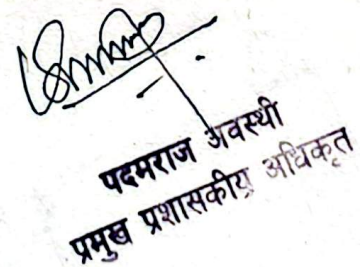 पदमराज अवस्थी
प्रमुख प्रशासकीय अधिकृत